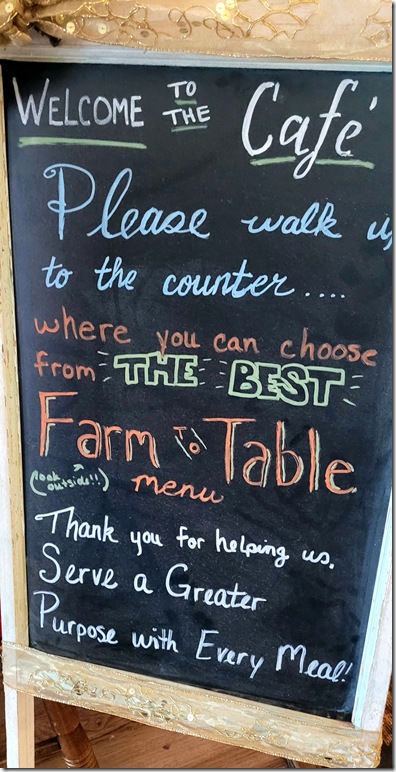 WELCOME TO THE Café
Please walk u
to the counter....
where you can choose
from THE BEST
Farm To Table
(look outside!!) menu
Thank you for helping us.
Serve a Greater
Purpose with Every Meal!